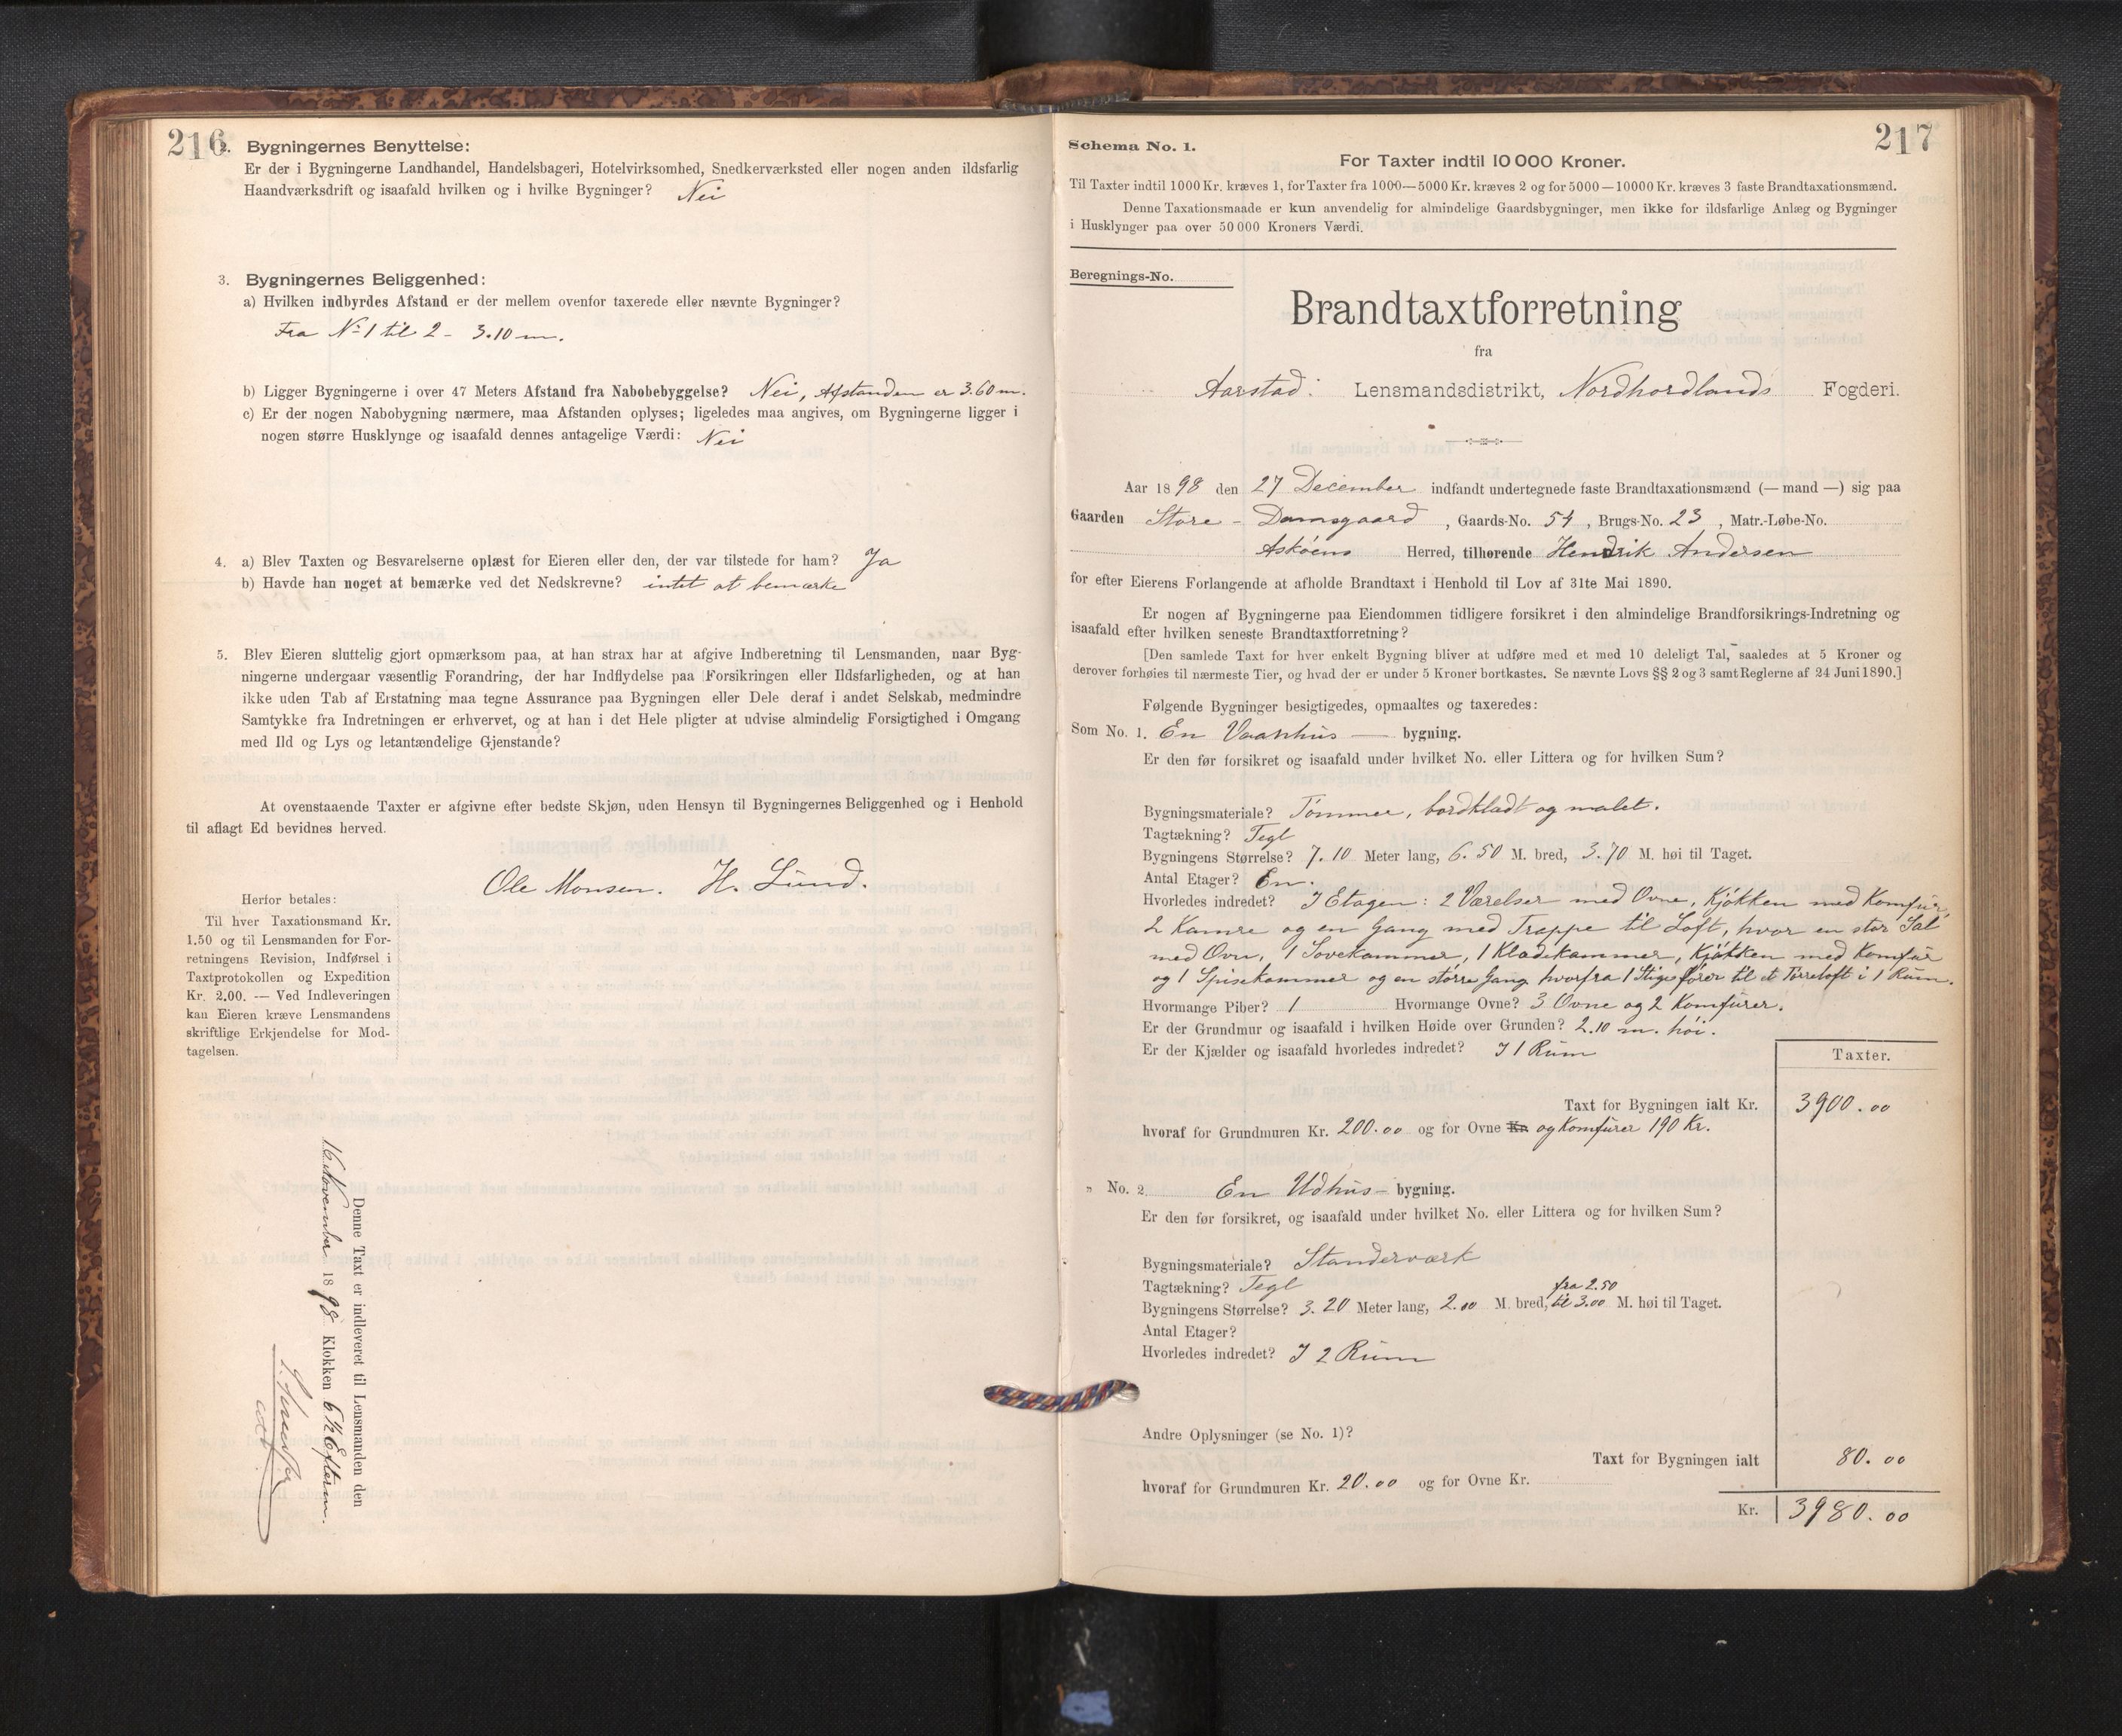 216
2. Bygningernes Benyttelse:
Er der i Bygningerne Landhandel, Handelsbageri, Hotelvirksomhed, Snedkerværksted eller nogen anden ildsfarlig
Haandværksdrift og isaafald hvilken og i hvilke Bygninger? Nei
3. Bygningernes Beliggenhed:
a) Hvilken indbyrdes Afstand er der mellem ovenfor taxerede eller nævnte Bygninger?
Fra No 1 til 2 - 3.10 m.
b) Ligger Bygningerne i over 47 Meters Afstand fra Nabobebyggelse? Nei, Afstanden er 3.60 m.
c) Er der nogen Nabobygning nærmere, maa Afstanden oplyses; ligeledes maa angives, om Bygningerne ligger i
nogen større Husklynge og isaafald dennes antagelige Værdi: Nei
4. a) Blev Taxten og Besvarelserne oplæst for Eieren eller den, der var tilstede for ham? Ja
b) Havde han noget at bemærke ved det Nedskrevne? intet at bemærke
5. Blev Eieren sluttelig gjort opmærksom paa, at han strax har at afgive Indberetning til Lensmanden, naar Byg-
ningerne undergaar væsentlig Forandring, der har Indflydelse paa Forsikringen eller Ildsfarligheden, og at han
ikke uden Tab af Erstatning maa tegne Assurance paa Bygningen eller Dele deraf i andet Selskab, medmindre
Samtykke fra Indretningen er erhvervet, og at han i det Hele pligter at udvise almindelig Forsigtighed i Omgang
med Ild og Lys og letantændelige Gjenstande?
At ovenstaaende Taxter er afgivne efter bedste Skjøn, uden Hensyn til Bygningernes Beliggenhed og i Henhold
til aflagt Ed bevidnes herved.
Ole Monsen. H. Lund.
Herfor betales:
Til hver Taxationsmand Kr.
1.50 og til Lensmanden for For-
retningens Revision, Indførsel i
Taxtprotokollen og Expedition
Kr. 2.00. — Ved Indleveringen
kan Eieren kræve Lensmandens
skriftlige Erkjendelse for Mod-
tagelsen.
Denne Taxt er indleveret til Lensmanden den
16 November 1898 Klokken 6 ½ Efterm.
217
Schema No. 1.
For Taxter indtil 10 000 Kroner.
Til Taxter indtil 1000 Kr. kræves 1, for Taxter fra 1000—5000 Kr. kræves 2 og for 5000—10000 Kr. kræves 3 faste Brandtaxationsmænd.
Denne Taxationsmaade er kun anvendelig for almindelige Gaardsbygninger, men ikke for ildsfarlige Anlæg og Bygninger
i Husklynger paa over 50 000 Kroners Værdi.
Beregnings-No.
Brandtaxtforretning
fra
Aarstad Lensmandsdistrikt, Nordhordlands Fogderi.
Aar 1898 den 27 December indfandt undertegnede faste Brandtaxationsmænd (— mand —) sig paa
Gaarden Store - Damsgaard, Gaards-No. 54, Brugs-No. 23, Matr.-Løbe-No.
Askøens Herred, tilhørende Hendrik Andersen
for efter Eierens Forlangende at afholde Brandtaxt i Henhold til Lov af 31te Mai 1890.
Er nogen af Bygningerne paa Eiendommen tidligere forsikret i den almindelige Brandforsikrings-Indretning og
isaafald efter hvilken seneste Brandtaxtforretning?
[Den samlede Taxt for hver enkelt Bygning bliver at udføre med et med 10 deleligt Tal, saaledes at 5 Kroner og
derover forhøies til nærmeste Tier, og hvad der er under 5 Kroner bortkastes. Se nævnte Lovs §§ 2 og 3 samt Reglerne af 24 Juni 1890.]
Følgende Bygninger besigtigedes, opmaaltes og taxeredes:
Som No. 1. En Vaanhus — bygning.
Er den før forsikret og isaafald under hvilket No. eller Littera og for hvilken Sum?
Bygningsmateriale? Tømmer, bordkladt og malet.
Tagtækning? Tegl
Bygningens Størrelse? 7.10 Meter lang, 6.50 M. bred, 3.70 M. høi til Taget.
Antal Etager? En.
Hvorledes indredet? I Etagen: 2 Værelser med Ovne, Kjøkken med Komfur,
2 Kamre og en Gang med Trappe til Loft, hvor en stor Sal
med Ovn, 1 Sovekammer, 1 Kladekammer, Kjøkken med Komfur
og 1 Spisekammer og en større Gang hvorfra 1 Stige fører til et Tørreloft i 1 Rum.
Hvormange Piber? 1 Hvormange Ovne? 3 Ovne og 2 Komfurer.
Er der Grundmur og isaafald i hvilken Høide over Grunden? 2.10 m. høi.
Er der Kjælder og isaafald hvorledes indredet? I 1 Rum
Taxter.
Taxt for Bygningen ialt Kr. 3900.00
hvoraf for Grundmuren Kr. 200.00 og for Ovne Kr. og Komfurer 190 Kr.
" No. 2 En Udhus - bygning.
Er den før forsikret, og isaafald under hvilket No. eller Littera og for hvilken Sum?
Bygningsmateriale? Standerværk
Tagtækning? Tegl
Bygningens Størrelse? 3.20 Meter lang, 2.00 M. bred, fra 2.50 til 3.00 M. høi til Taget.
Antal Etager?
Hvorledes indredet? I 2 Rum
Andre Oplysninger (se No. 1)?
Taxt for Bygningen ialt 80.00
hvoraf for Grundmuren Kr. 20.00 og for Ovne Kr.
Kr. 3980.00